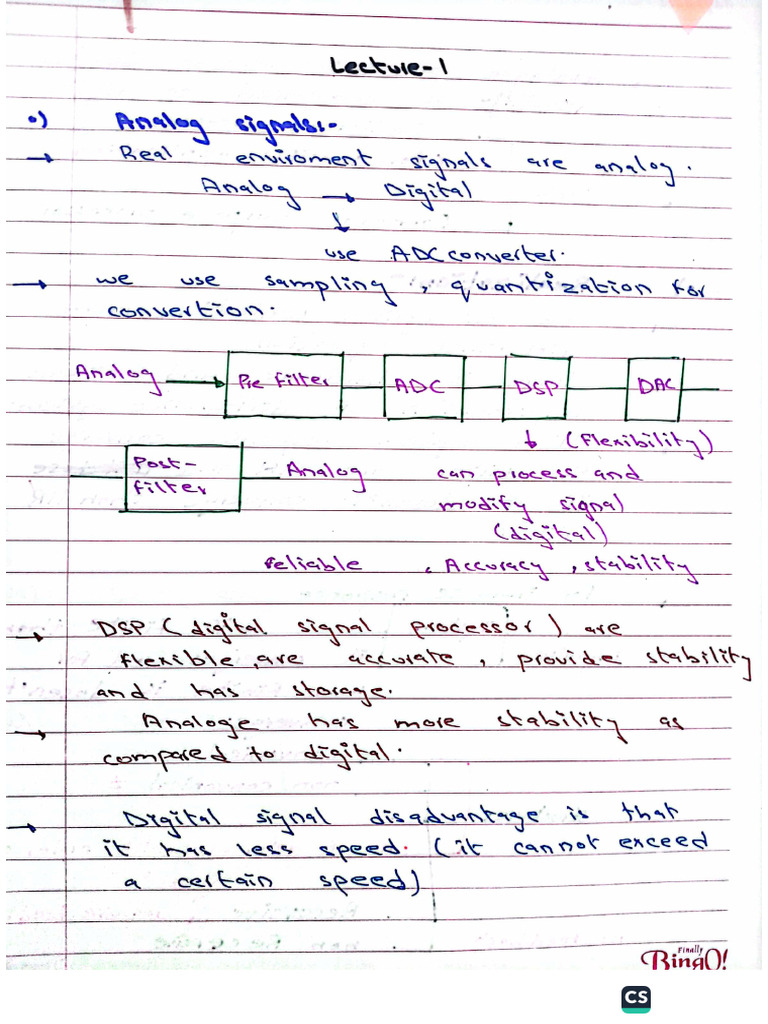 Lecture-1
Analog signals:-
→ Real enviroment signals are analog.
Analog → Digital
↓
use ADC converter.
→ we use sampling, quantization for
convertion.
Analog → Pre filter ADC DSP DAC
↓ (flexibility)
Post-
filter
Analog
can process and
modify signal
(digital)
reliable, Accuracy, stability
→ DSP (digital signal processor) are
flexible, are accurate, provide stability
and has storage.
→ Analoge has more stability as
compared to digital.
→ Digital signal disadvantage is that
it has less speed. (it cannot exceed
a certain speed)
Finally
BingO!
CS